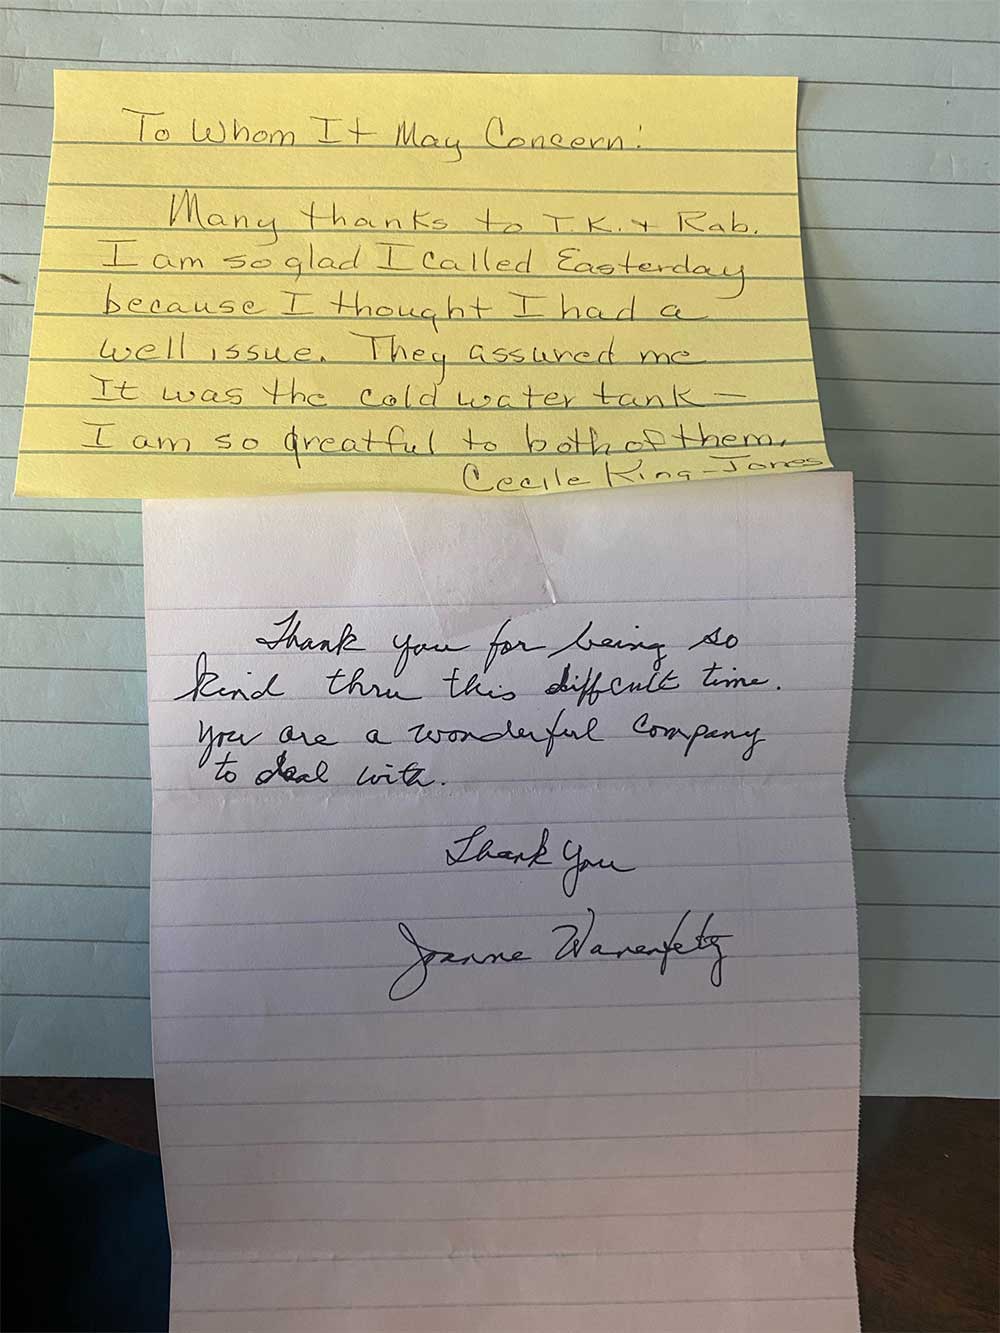 To Whom It May Concern:
Many thanks to T.K. + Rab.
I am so glad I called Easterday
because I thought I had a
well issue. They assured me
It was the cold water tank —
I am so greatful to both of them.
Cecile King-Jones
Thank you for being so
kind thru this difficult time.
You are a wonderful company
to deal with.
Thank You
Joanne